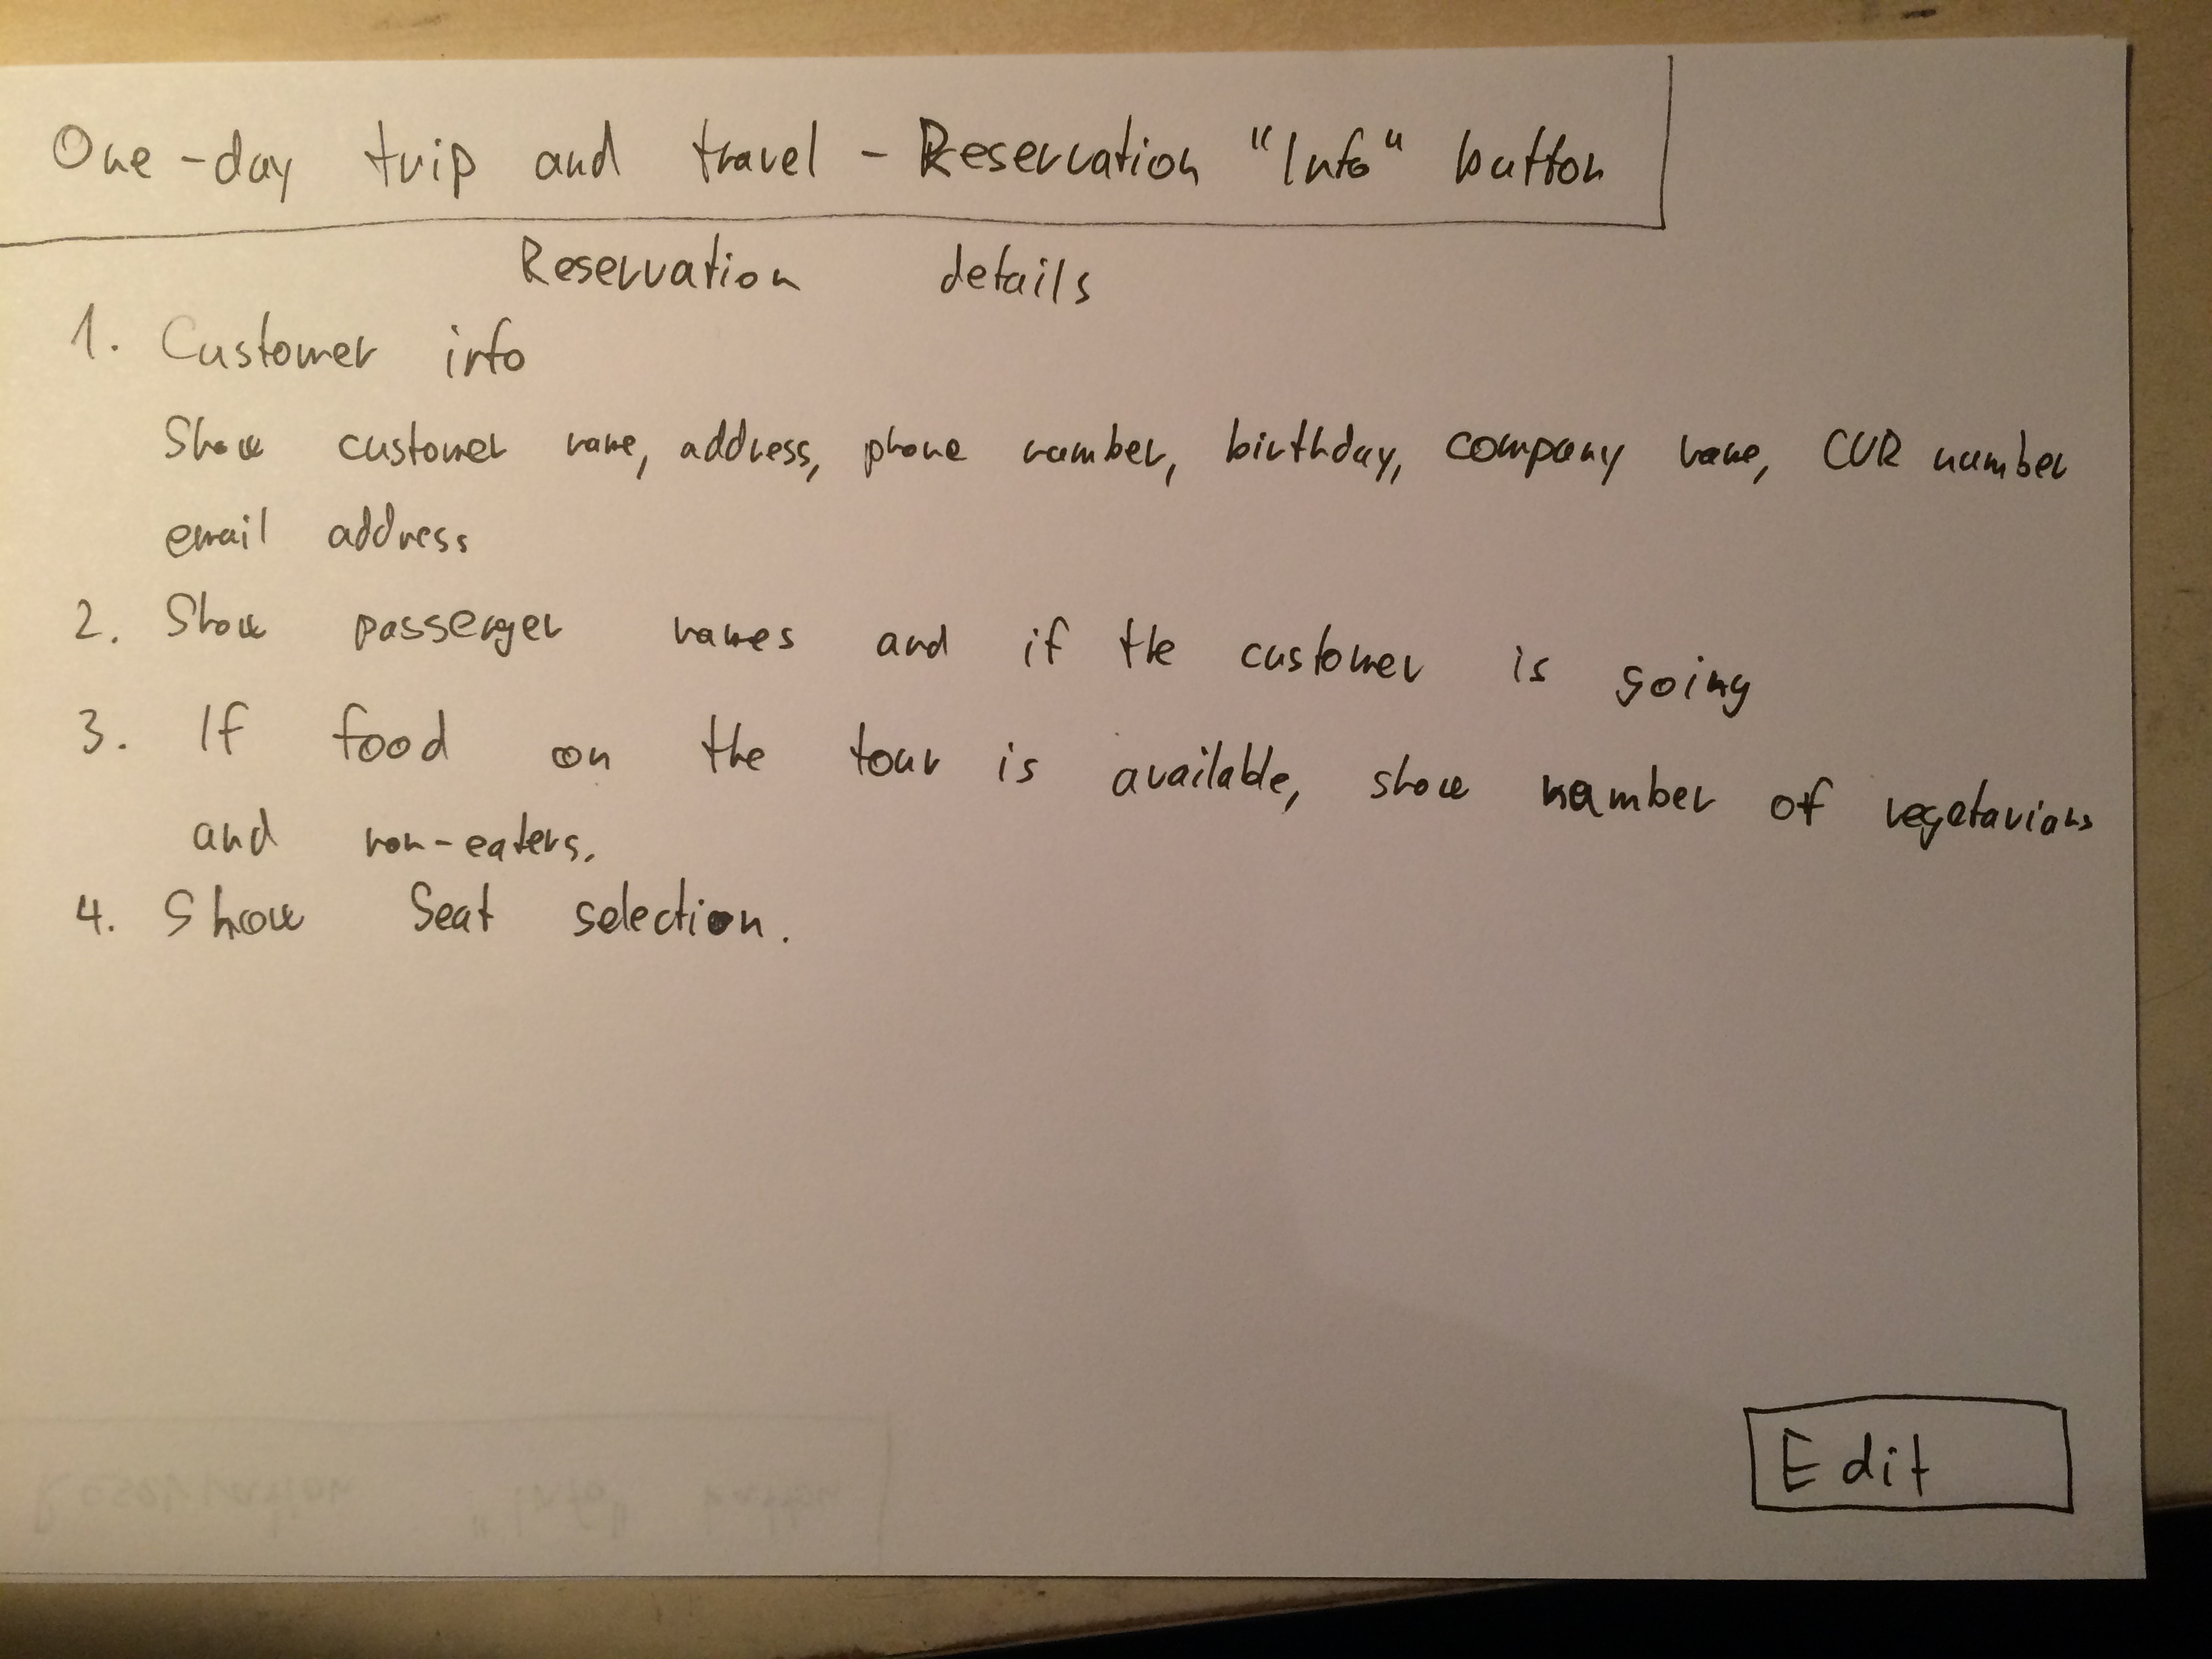 One-day trip and travel - Reservation "Info" button
Reservation details
1. Customer info
Show customer name, address, phone number, birthday, company name, CVR number
email address
2. Show passenger names and if the customer is going
3. If food on the tour is available, show number of vegetarians
and non-eaters.
4. Show Seat selection.
Edit
Reservation "Info" button